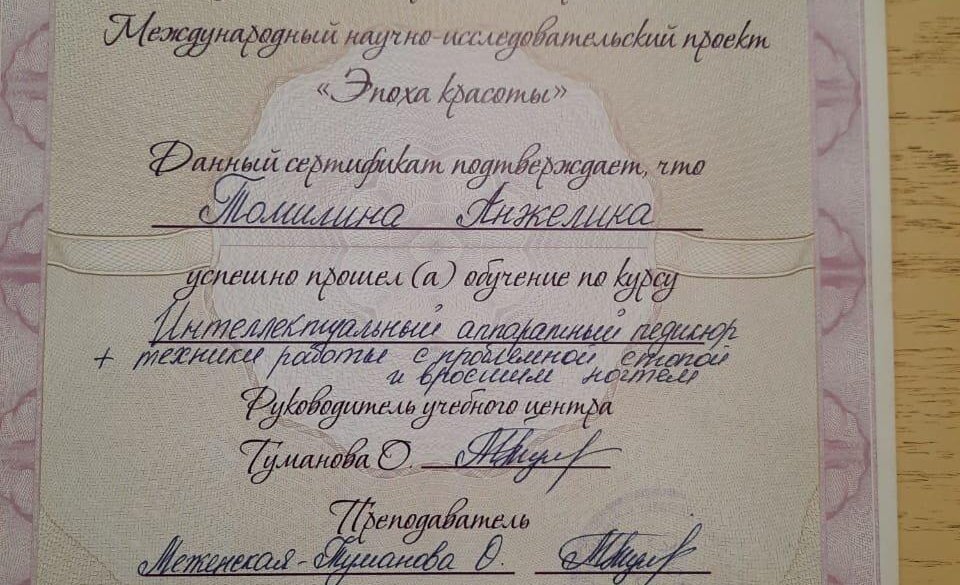 Международный научно-исследовательский проект
«Эпоха красоты»
Данный сертификат подтверждает, что
Томилина Анжелина
успешно прошел (а) обучение по курсу
Интеллектуальный аппаратный педикюр
+ техники работы с проблемной стопой
и вросшим ногтем
Руководитель учебного центра
Туманова О.
Преподаватель
Меженская-Туманова О.